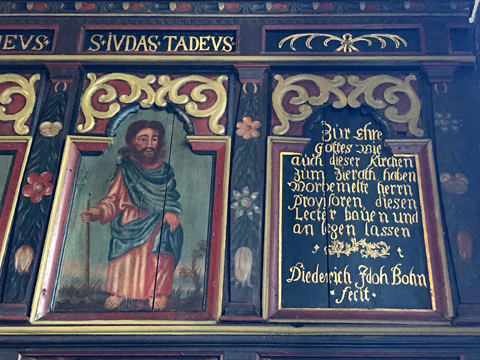 ÆUS
S·IUDAS·TADEUS
Zür Ehre
Gottes wie
auch dieser Kirchen
zum Zierath haben
Vorbemelte herrn
provisoren, diesen
Lecter baüen und
an legen lassen
Diederich Joh Bohn
fecit